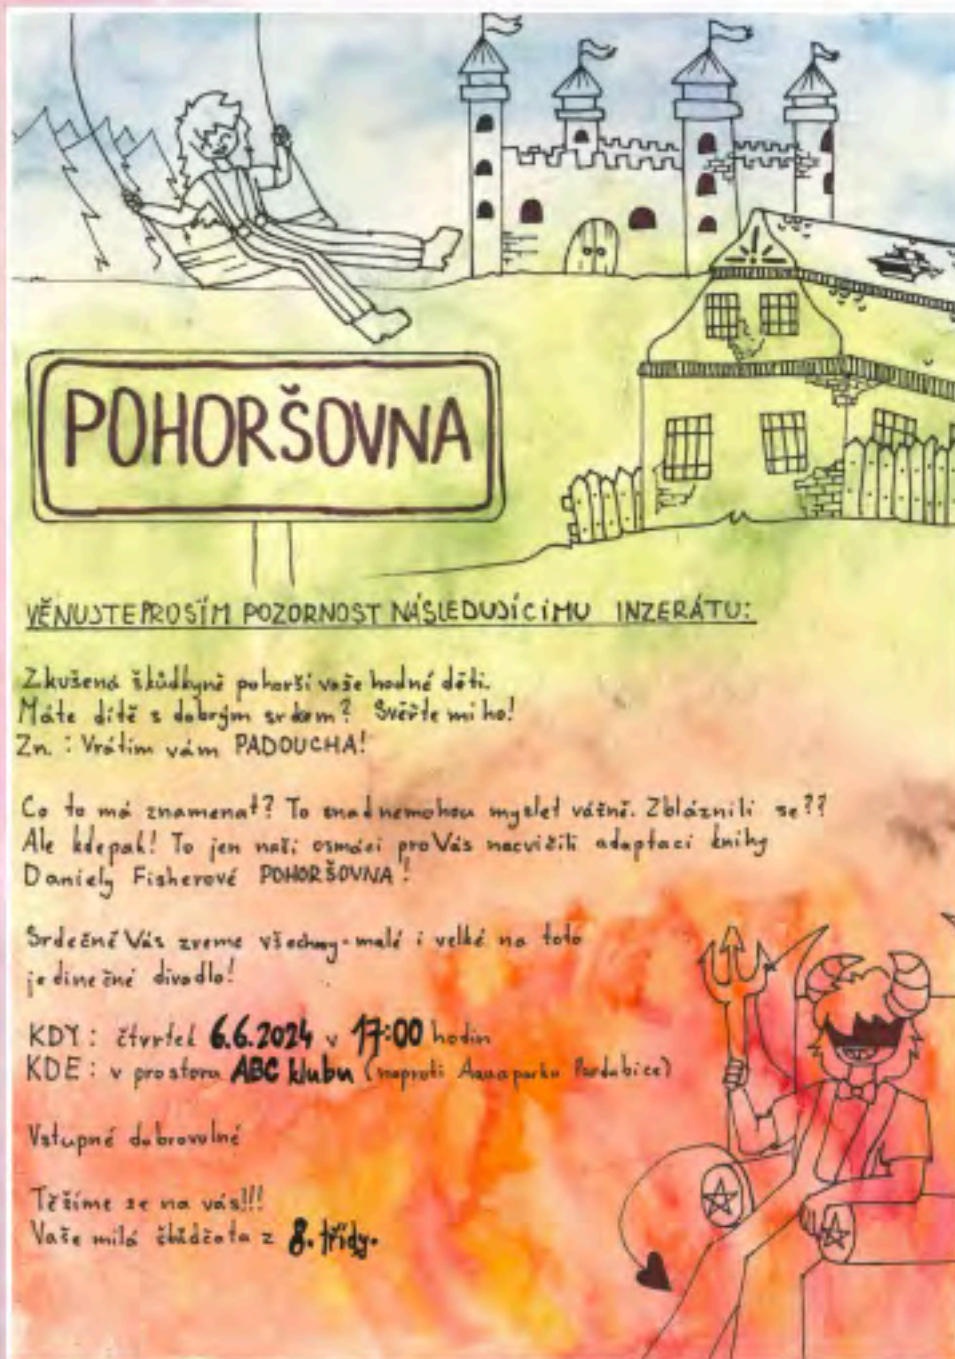 POHORŠOVNA
VĚNUJTE PROSÍM POZORNOST NÁSLEDUJÍCÍMU INZERÁTU:
Zkušená škůdkyně pohorší vaše hodné děti.
Máte dítě s dobrým srdcem? Svěřte mi ho!
Zn.: Vrátím vám PADOUCHA!
Co to má znamenat? To snad nemohou myslet vážně. Zbláznili se??
Ale kdepak! To jen naši osmáci pro Vás nacvičili adaptaci knihy
Daniely Fisherové POHORŠOVNA!
Srdečně Vás zveme všechny - malé i velké na toto
jedinečné divadlo!
KDY: čtvrtek 6.6.2024 v 17:00 hodin
KDE: v prostoru ABC klubu (naproti Aquaparku Pardubice)
Vstupné dobrovolné
Těšíme se na vás!!!
Vaše milá z 8. třídy.